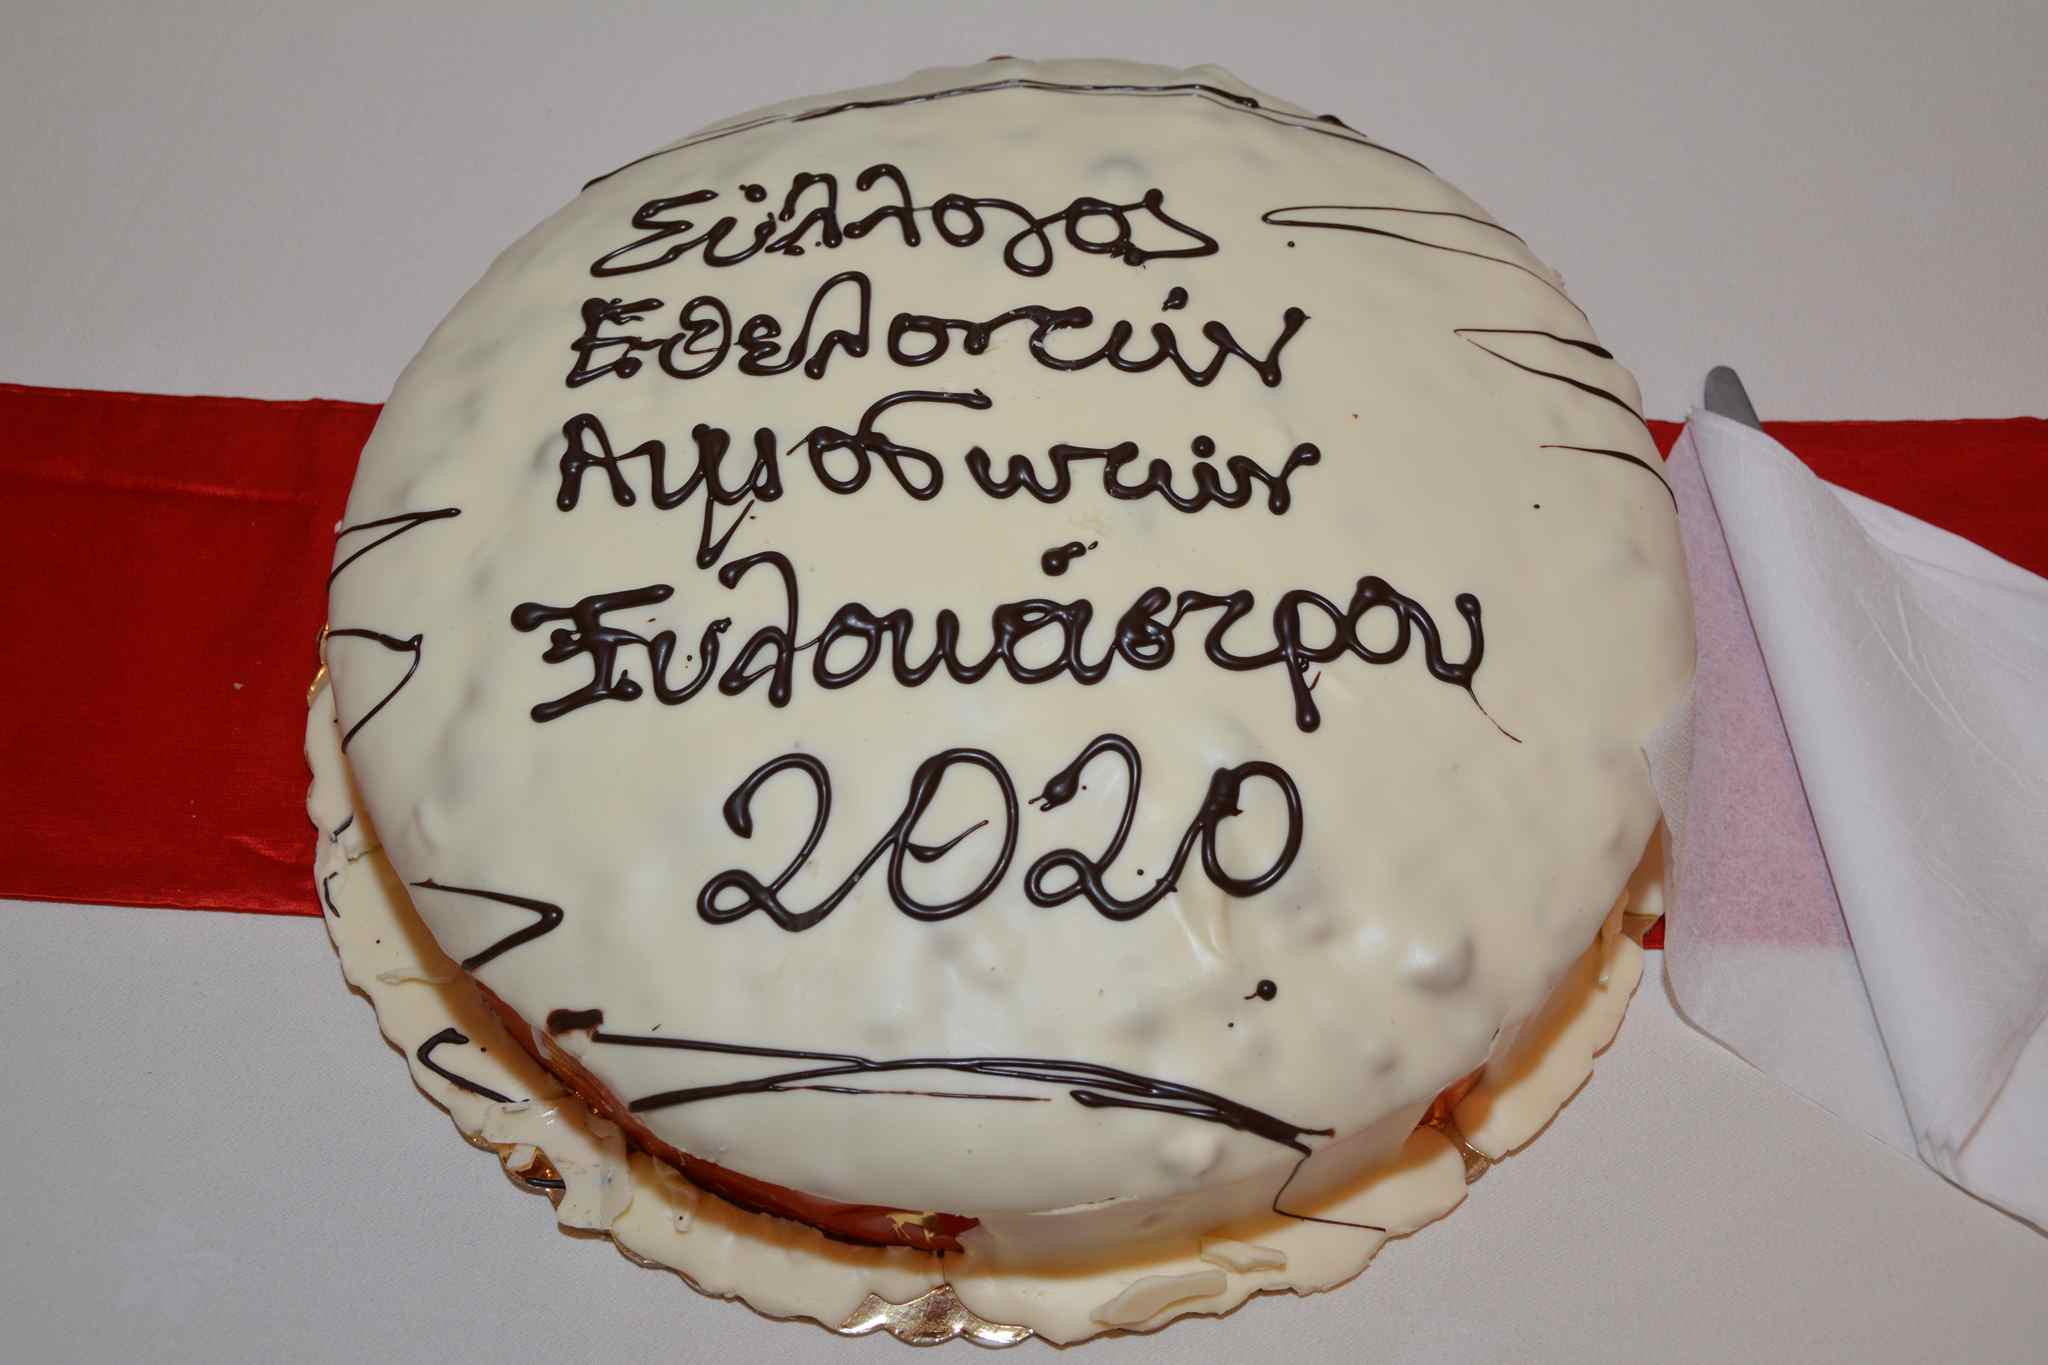 Σύλλογος
Εθελοντών
Αιμοδωτών
Ξυλοκάστρου
2020